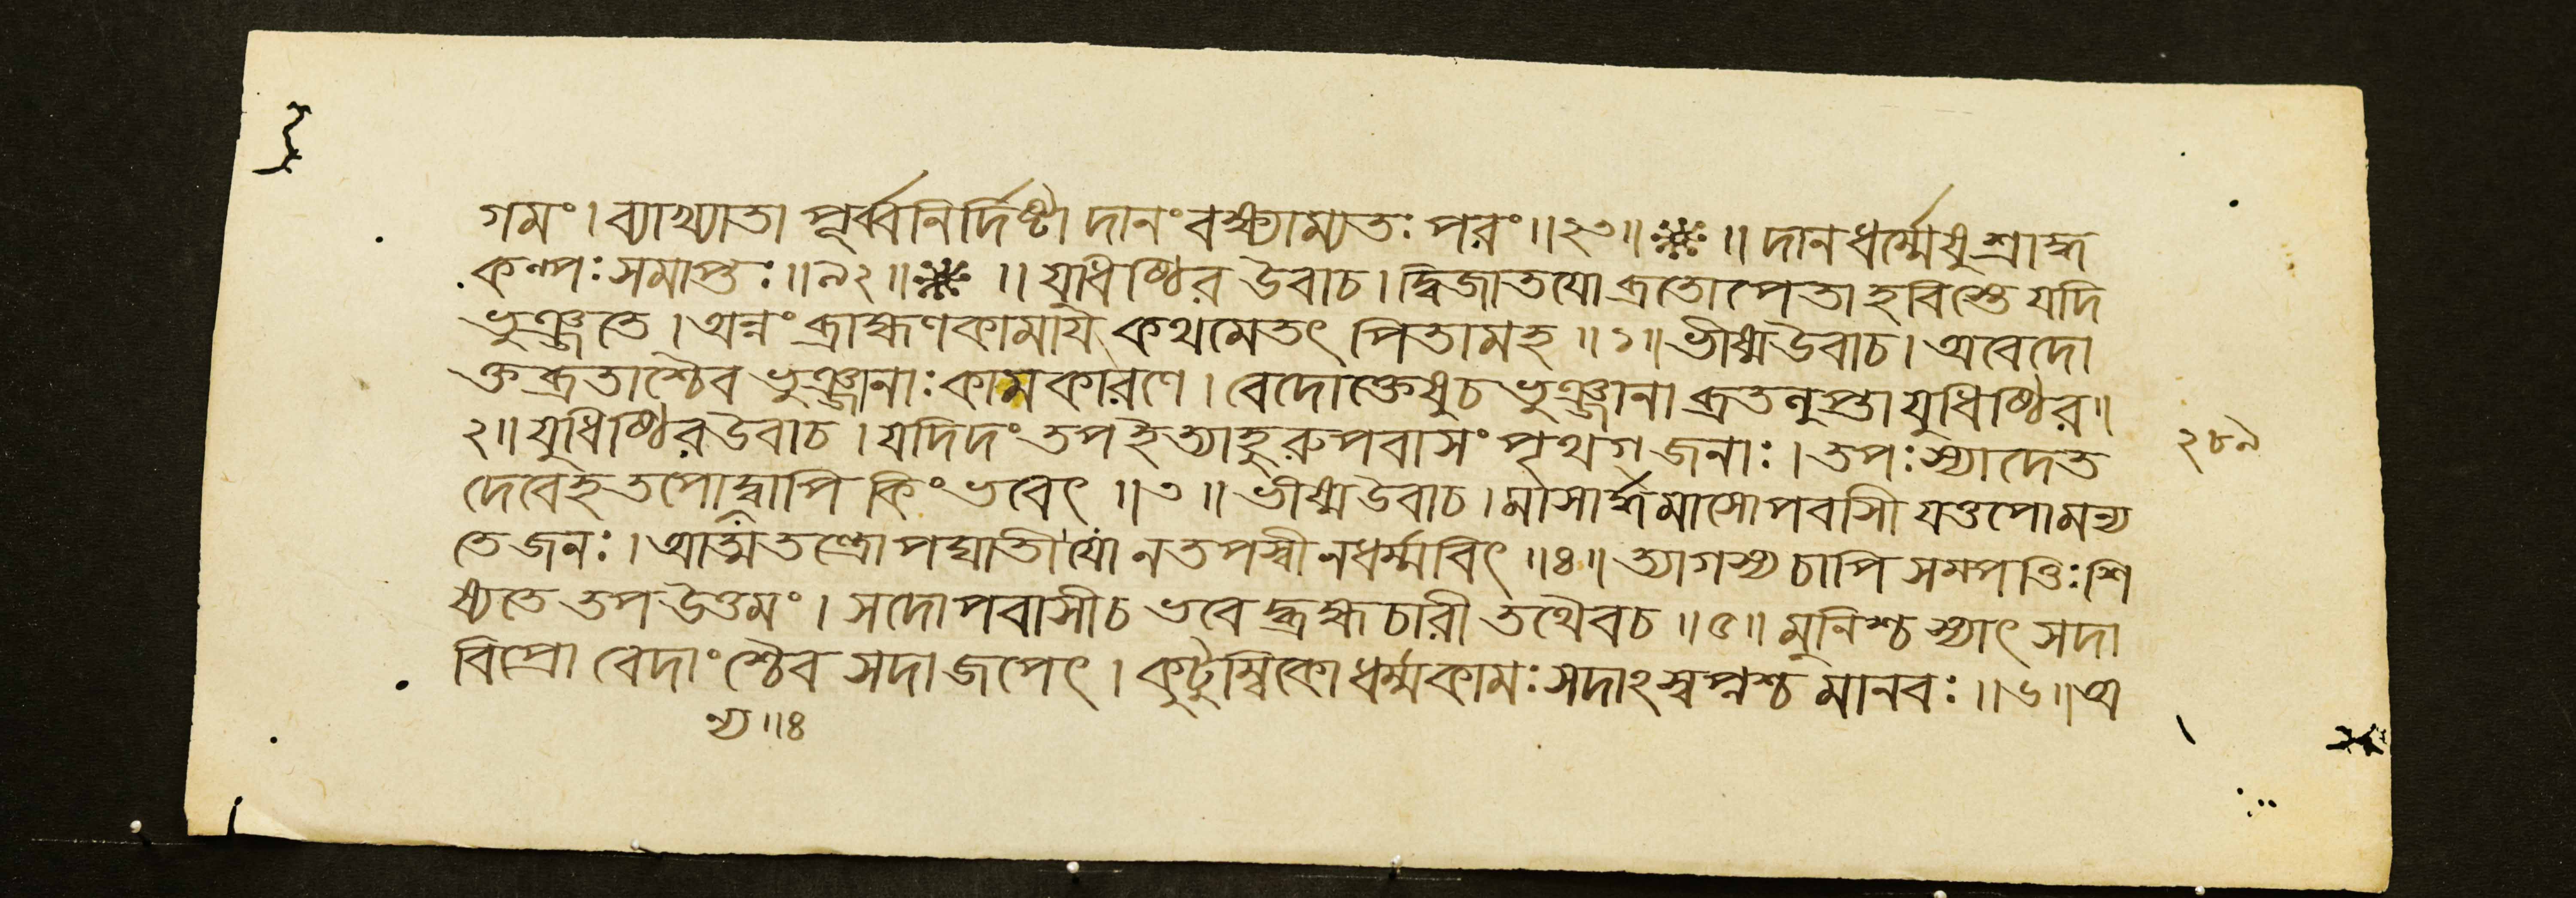 গমং। ব্যাখ্যাতা পূর্ব্বনির্দিষ্টা দানং বক্ষ্যাম্যতঃ পরং॥২৩॥ ॥ দানধর্ম্মেষু শ্রাদ্ধ
কল্পঃ সমাপ্তঃ॥৯২॥ ॥ যুধিষ্ঠির উবাচ। দ্বিজাতযো ব্রতোপেতা হবিস্তে যদি
ভুঞ্জতে। অন্নং ব্রাহ্মণকামায কথমেতৎ পিতামহ॥১॥ ভীষ্ম উবাচ। অবেদো
ক্তব্রতাশ্চৈব ভুঞ্জানাঃ কামকারণে। বেদোক্তেষু চ ভুঞ্জানা ব্রতলুপ্তা যুধিষ্ঠির॥
২॥ যুধিষ্ঠির উবাচ। যদিদং তপ ইত্যাহুরুপবাসং পৃথগ্জনাঃ। তপঃ স্যাদেত
দেবেহ তপোদ্বাপি কিং ভবেৎ॥৩॥ ভীষ্ম উবাচ। মাসার্দ্ধমাসোপবাসী যত্তপো মন্য
তে জনঃ। আত্মতন্ত্রোপঘাতী যো ন তপস্বী ন ধর্ম্মবিৎ॥৪॥ ত্যাগস্য চাপি সম্পত্তিঃ শি
ষ্যতে তপ উত্তমং। সদোপবাসী চ ভবেদ্ব্রহ্মচারী তথৈব চ॥৫॥ মুনিশ্চ স্যাৎ সদা
বিপ্রো বেদাংশ্চৈব সদা জপেৎ। কুটুম্বিকো ধর্ম্মকামঃ সদাঽস্বপ্নশ্চ মানবঃ॥৬॥ অ
ন্য॥৪
২৮৯